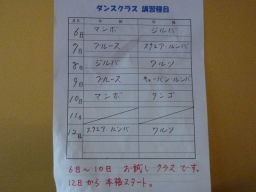 ダンスクラス 講習種目
6日 マンボ ジルバ
7日 ブルース スクエア・ルンバ
8日 ジルバ ワルツ
9日 ブルース キューバン・ルンバ
10日 マンボ タンゴ
11日
12日 スクエア・ルンバ ワルツ
6日〜10日 お試しクラスです。
12日から 本格スタート。